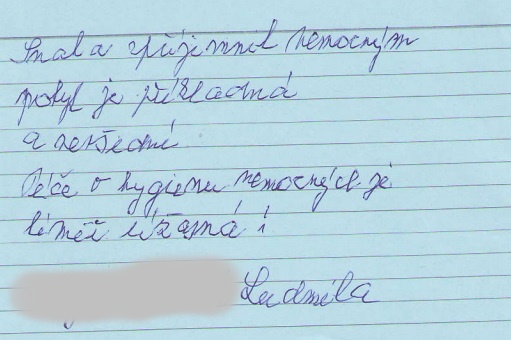 Snaha zpříjemnit nemocným
pobyt je příkladná
a nevšední
Péče o hygienu nemocných je
téměř úžasná!
Ludmila